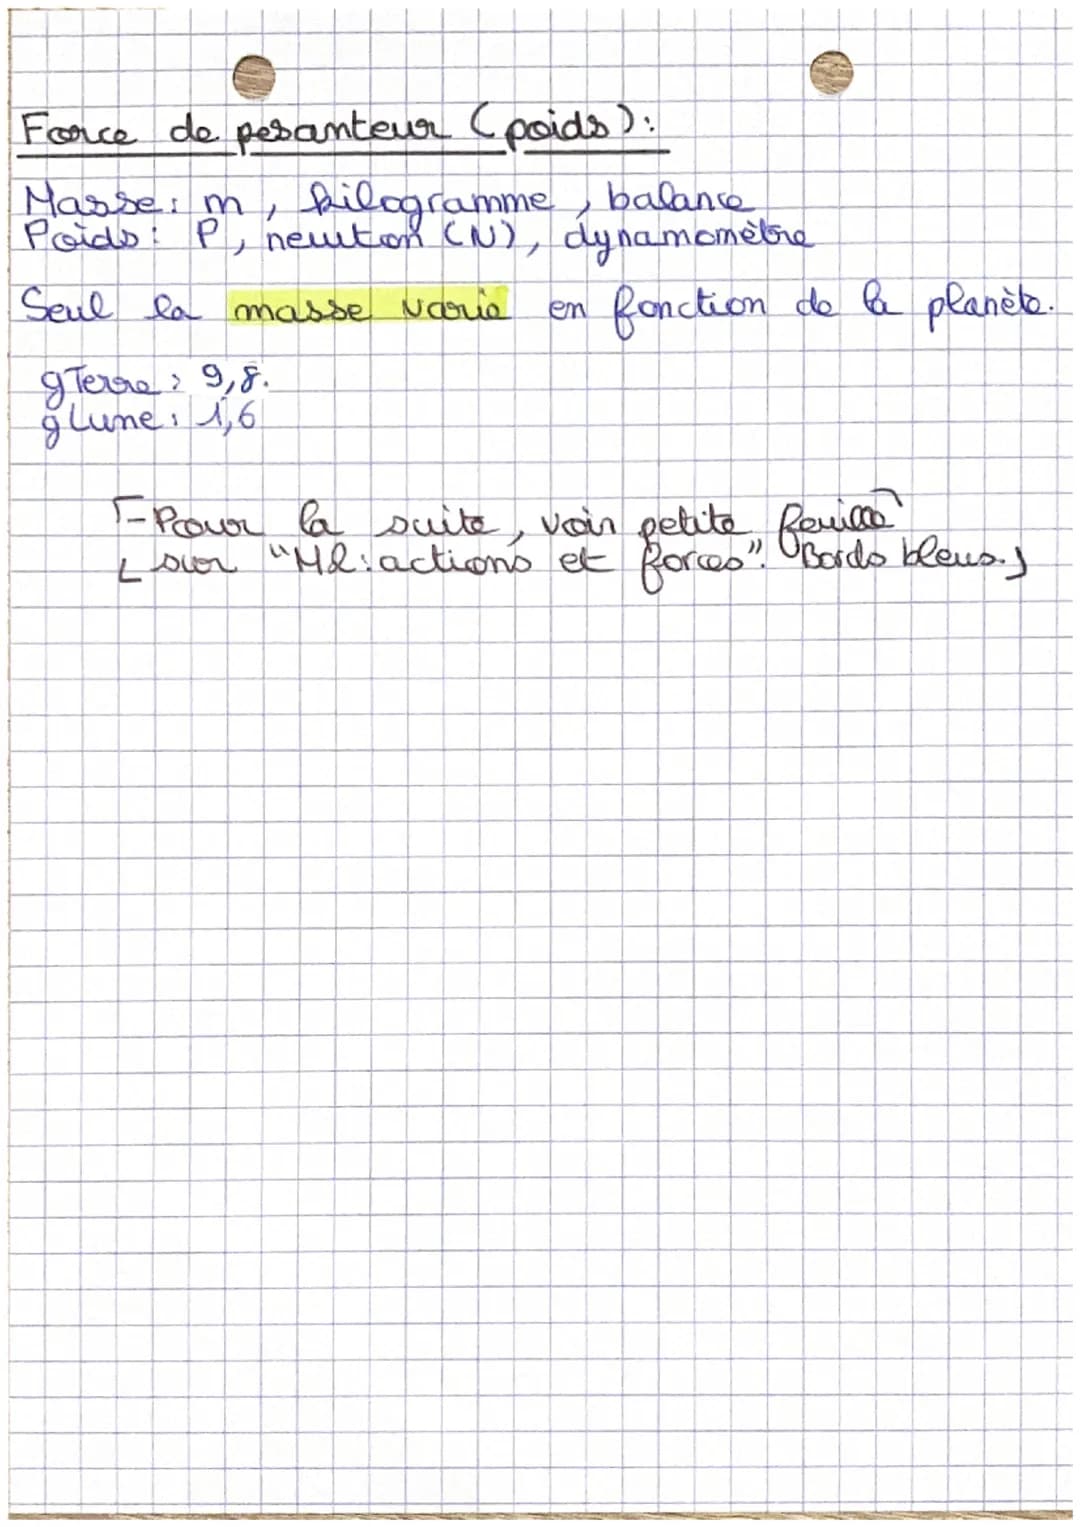 Force de pesanteur (poids):
Masse: m, kilogramme, balance
Poids: P, newton (N), dynamomètre
Seul la masse varie en fonction de la planète.
g Terre: 9,8.
g Lune: 1,6
- Pour la suite, voir petite feuille
sur "M2: actions et forces". Bords bleus.